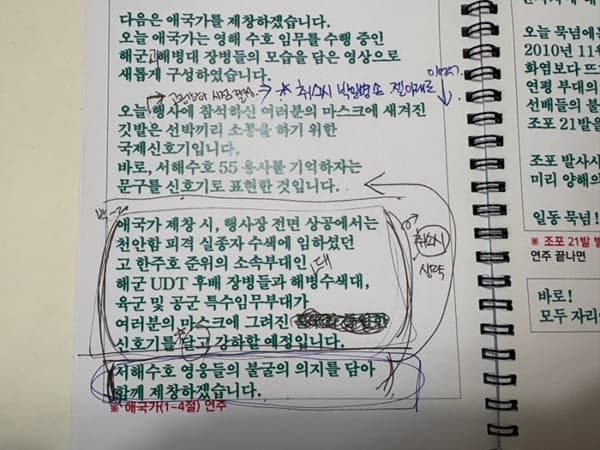 다음은 애국가를 제창하겠습니다.
오늘 애국가는 영해 수호 임무를 수행 중인
해군과해병대 장병들의 모습을 담은 영상으로
새롭게 구성하였습니다.
취소시
오늘 행사에 참석하신 여러분의 마스크에 새겨진
깃발은 선박끼리 소통을 하기 위한
국제신호기입니다.
바로, 서해수호 55용사를 기억하자는
문구를 신호기로 표현한 것입니다.
애국가 제창 시, 행사장 전면 상공에서는
천안함 피격 실종자 수색에 임하셨던
고 한주호 준위의 소속부대인
대
해군 UDT 후배 장병들과 해병수색대,
육군 및 공군 특수임무부대가
여러분의 마스크에 그려진
신호기를 달고 강하할 예정입니다.
취소시
생략
서해수호 영웅들의 불굴의 의지를 담아
함께 제창하겠습니다.
※ 애국가(1~4절) 연주
오늘 묵념에는
2010년 11
화염보다 뜨
연평 부대의
선배들의 불
조포 21발을
조포 발사시
미리 양해의
일동 묵념!
※ 조포 21발 발
연주 끝나면
바로!
모두 자리